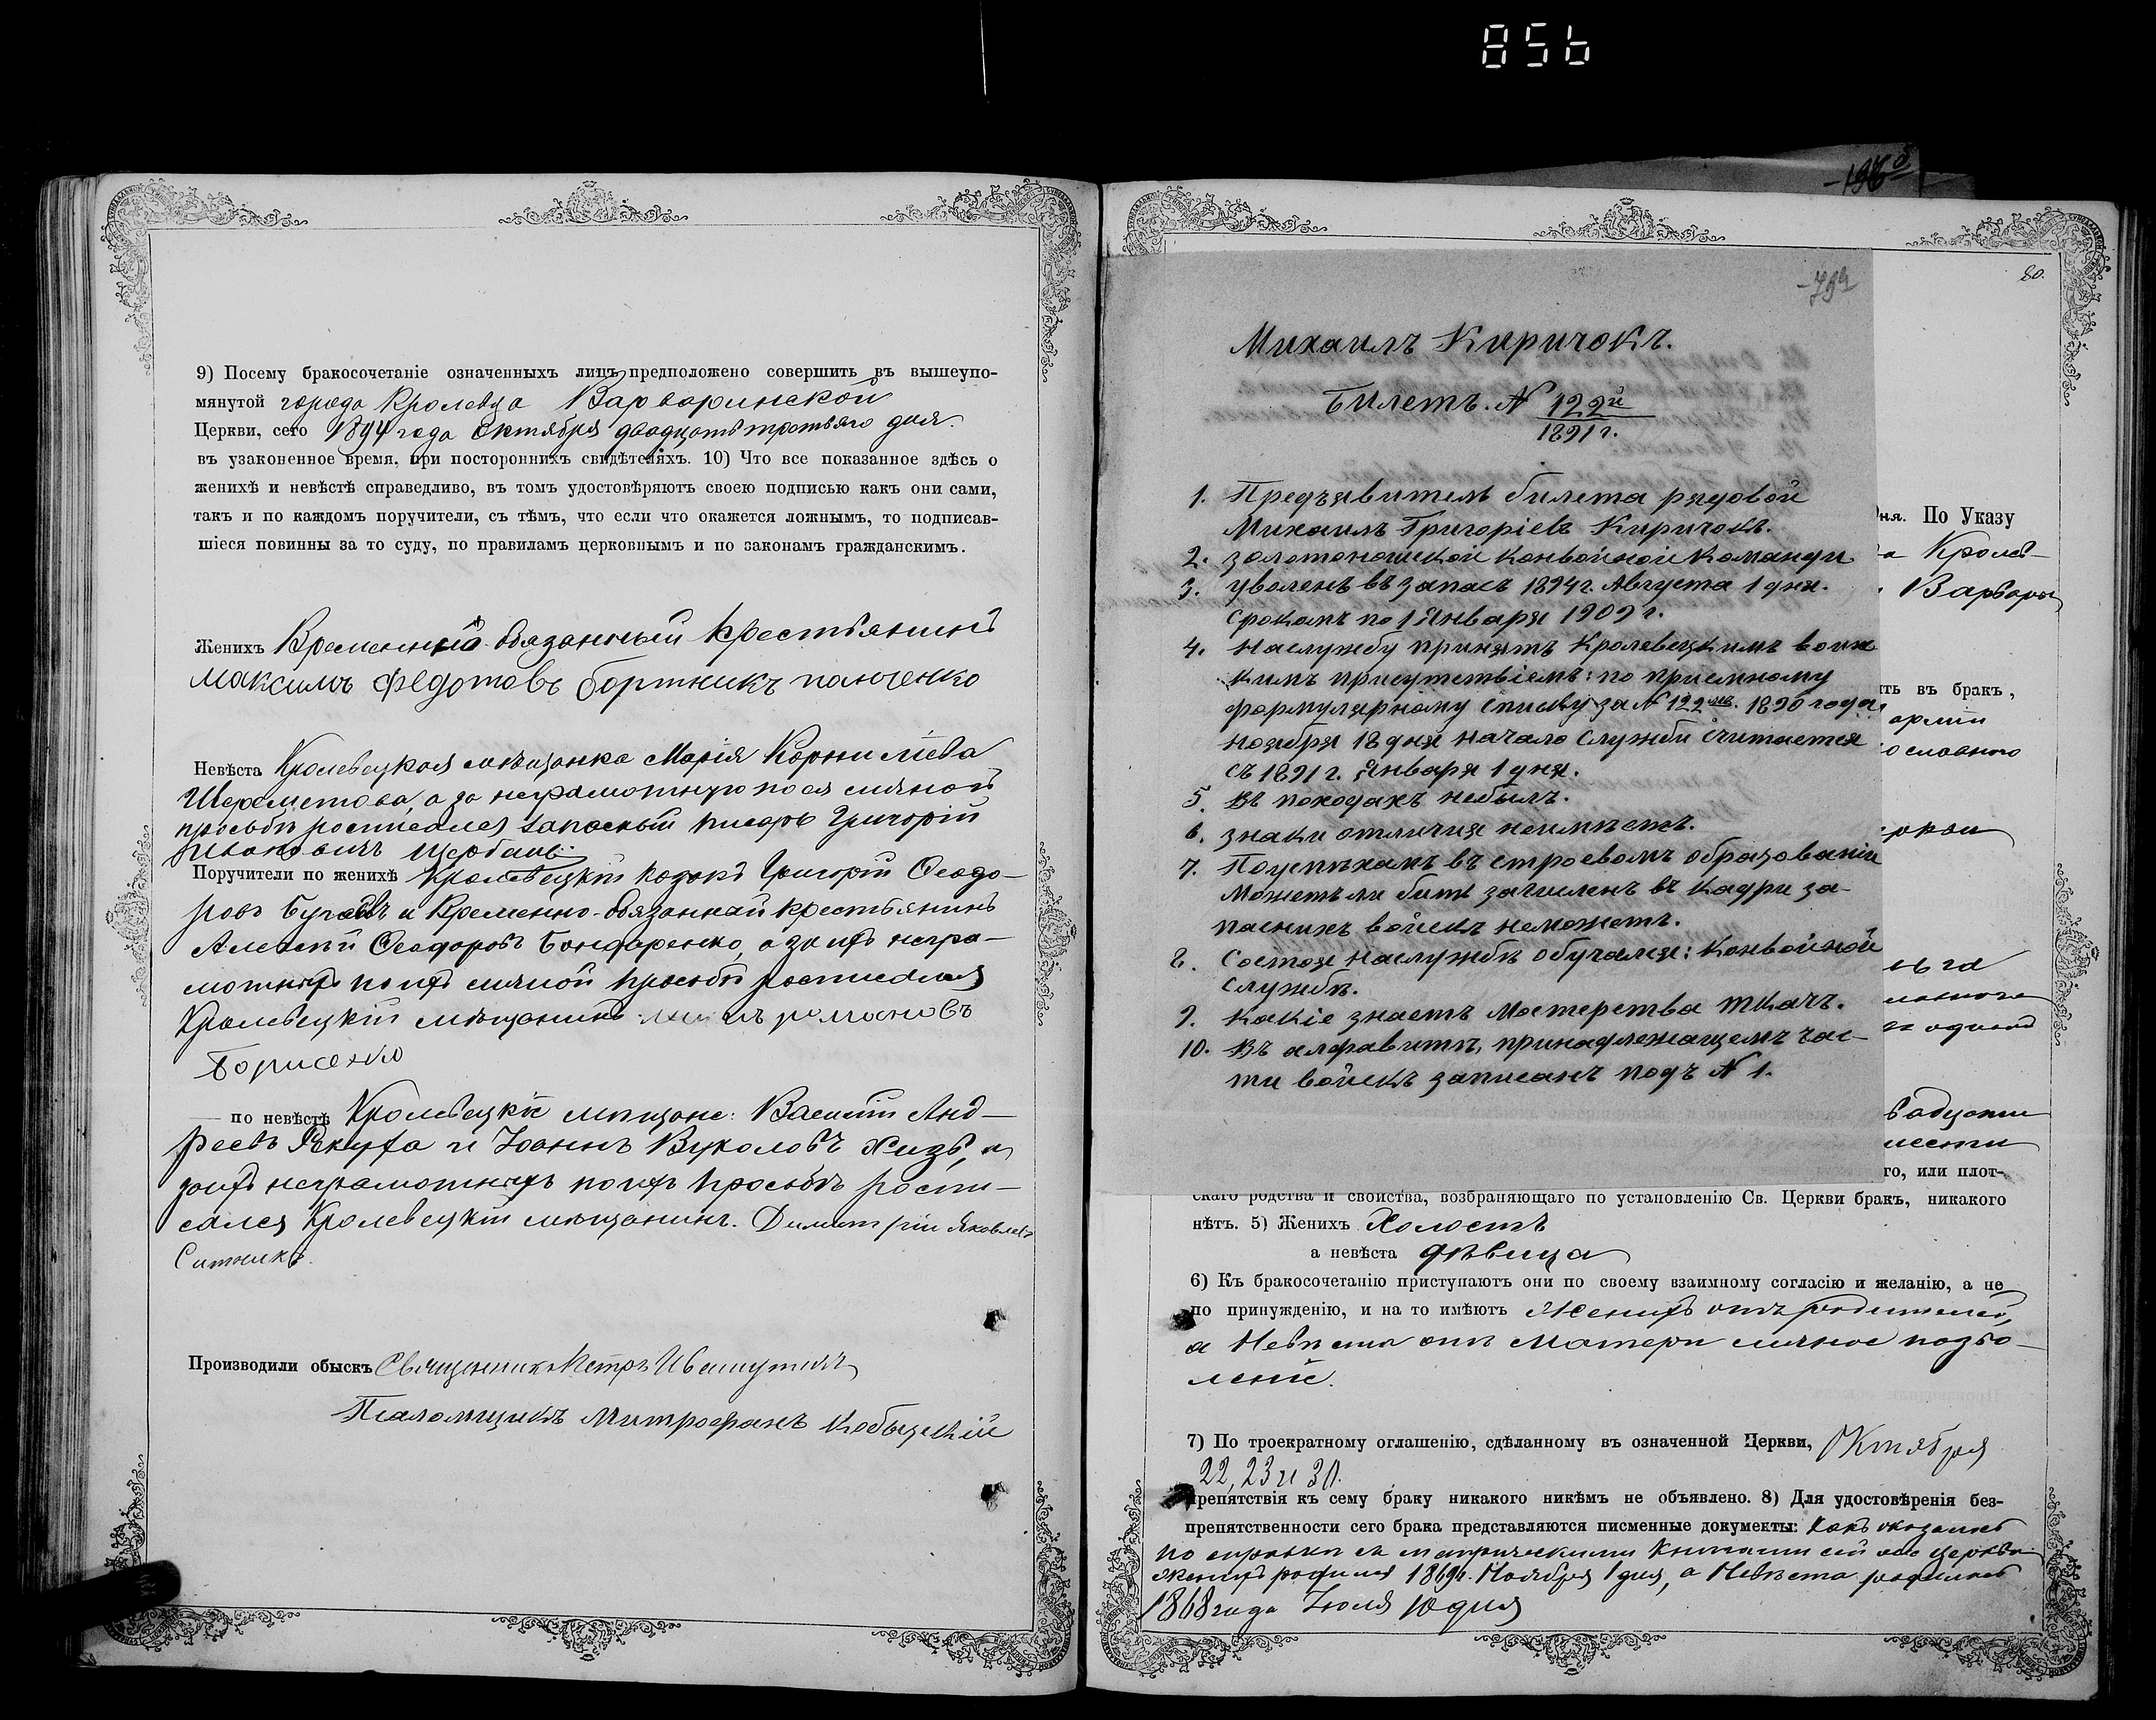 856
9) Посему бракосочетаніе означенныхъ лицъ предположено совершить въ вышеупо-
мянутой города Кролевца Варваринской
Церкви, сего 1894 года Октября двадцать третьяго дня.
въ узаконенное время, при постороннихъ свидѣтеляхъ. 10) Что все показанное здѣсь о
женихѣ и невѣстѣ справедливо, въ томъ удостовѣряютъ своею подписью какъ они сами,
такъ и по каждомъ поручители, съ тѣмъ, что если что окажется ложнымъ, то подписав-
шіеся повинны за то суду, по правиламъ церковнымъ и по законамъ гражданскимъ.
Женихъ Временно обязанный крестьянинъ
Максимъ Федотовъ бортникъ панченко
Невѣста Кролевецкая мѣщанка Марія Корниліева
Шереметова, а за неграмотную по ея личной
просьбѣ росписался запасный писарь Григорій
Ивановичъ Щербакъ
Поручители по женихѣ Кролевецкій козакъ Григорій Ѳеодо-
ровъ и Временно-обязанный крестьянинъ
Алексѣй Ѳеодоровъ Бондаренко, а за ихъ негра-
мотныхъ по ихъ личной просьбѣ росписался
Кролевецкій мѣщанинъ романовъ
Борисенко
по невѣстѣ Кролевецкіе мѣщане: Василій Анд-
реевъ и Іоаннъ Вуколовъ а
за ихъ неграмотныхъ по ихъ просьбѣ роспи-
сался Кролевецкій мѣщанинъ. Димитрій Яковлевъ
Ситникъ.
Производили обыскъ Священникъ Петръ
Псаломщикъ Митрофанъ Кобыщскій
80.
Михаилъ Киричокъ.
Билетъ. № 122й
1891 г.
1. Предъявитель билета рядовой
Михаилъ Григоріевъ Киричокъ.
2. золотоношской Конвойной Команди
3. уволенъ въ запасъ 1894 г. Августа 1 дня.
Срокомъ по 1 Января 1909 г.
4. На службу принятъ Кролевецкимъ воин
кимъ присутствіемъ: по приемному
формулярному списку за № 122мъ. 1890 года
ноября 18 дня начало Служби Считается
съ 1891 г. Января 1 дня.
5. Въ походахъ небылъ.
6. знаки отличия неимѣетъ.
7. Поуспѣхамъ въ строевомъ образованіи
Можетъ ли бить зачисленъ въ Кадри за-
пасникъ войскъ неможетъ.
8. Состоя наслужбѣ обучался: Конвойной
Службѣ.
9. Какіе знаетъ Мастерства ткачъ.
10. Въ алфавитѣ, принадлежащемъ час-
ти войскъ записанъ подъ № 1.
дня. По Указу
Кролев-
Варвары
ть въ бракъ,
арміи
ославнаго
го, или плот-
скаго родства и свойства, возбраняющаго по установленію Св. Церкви бракъ, никакого
нѣтъ. 5) Женихъ Холостъ
а невѣста дѣвица
6) Къ бракосочетанію приступаютъ они по своему взаимному согласію и желанію, а не
по принужденію, и на то имѣютъ Женихъ отъ родителей,
а Невѣста отъ матери личное позво-
леніе.
7) По троекратному оглашенію, сдѣланному въ означенной Церкви, Октября
22, 23 и 30.
препятствія къ сему браку никакого никѣмъ не объявлено. 8) Для удостовѣренія без-
препятственности сего брака представляются писменные документы: какъ оказалось
по справкѣ съ метрическими книгами сей же церкви
женихъ родился 1869 г. Ноября 1 дня, а Невѣста родилась
1868 года Іюля 10 дня